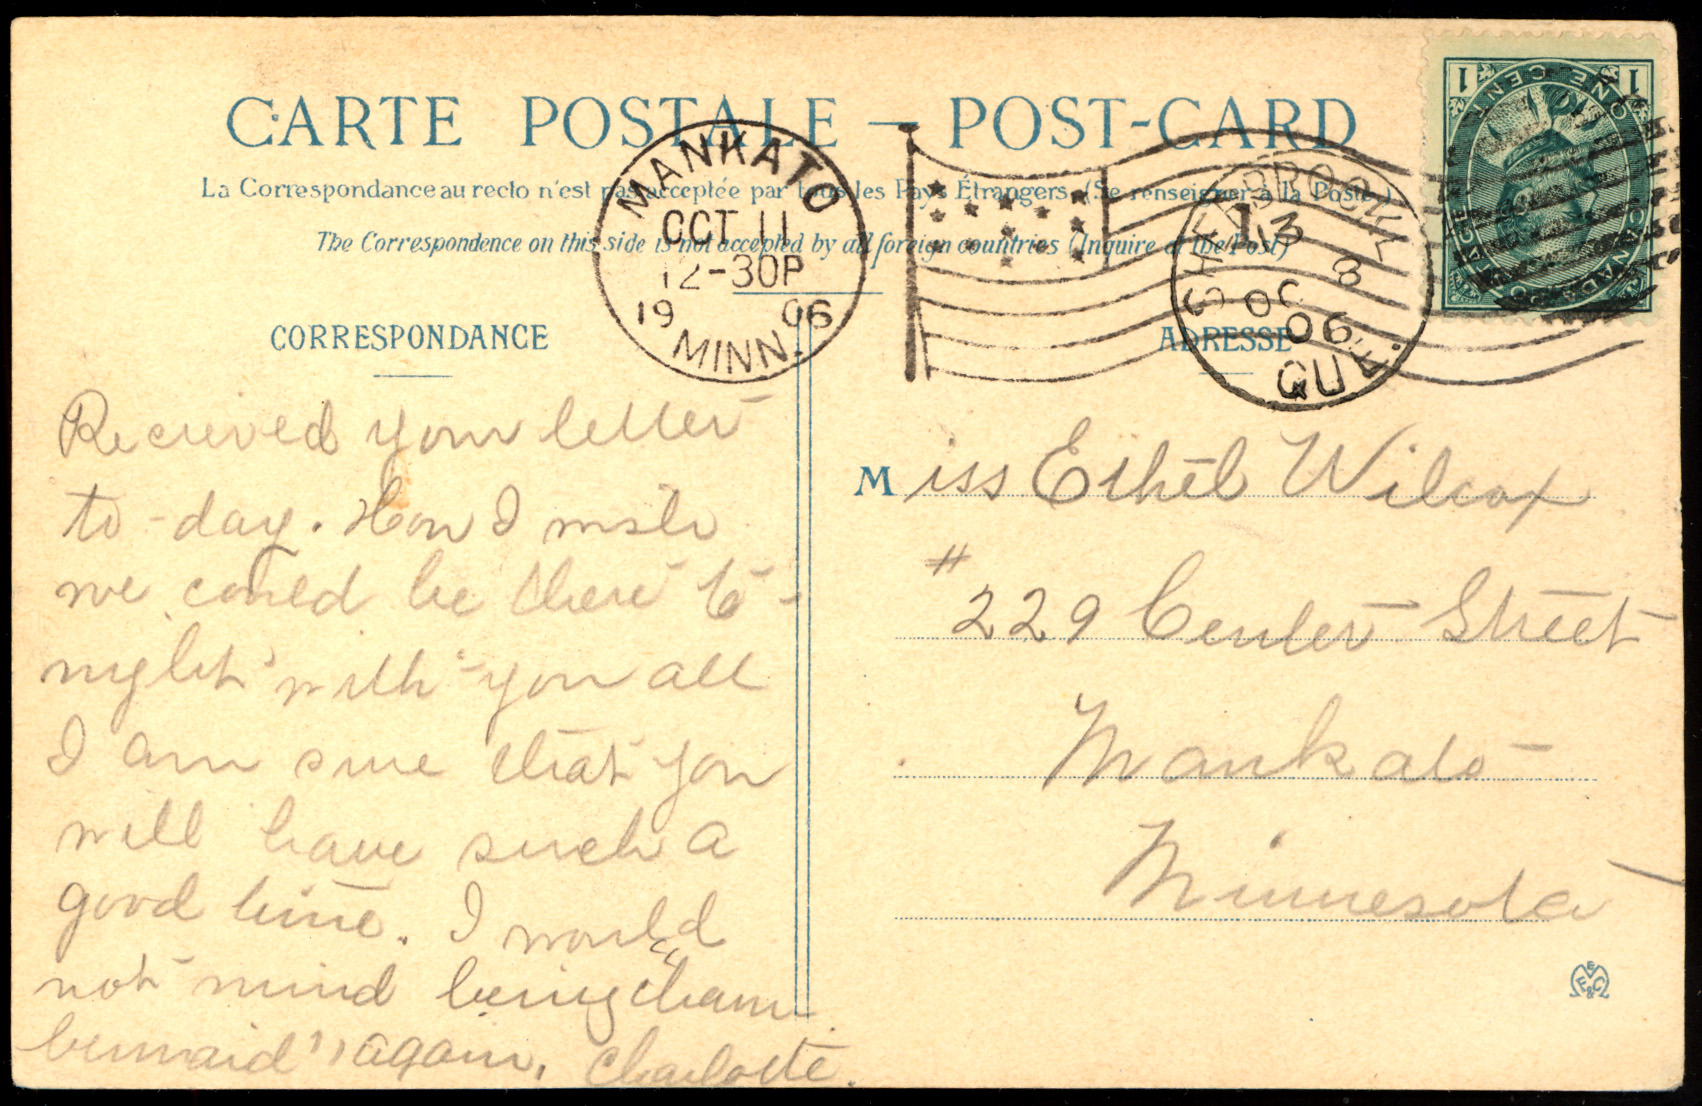 CARTE POSTALE — POST-CARD
La Correspondance au recto n'est pas acceptée par tous les Pays Étrangers. (Se renseigner à la Poste)
The Correspondence on this side is not accepted by all foreign countries (Inquire at the Post)
MANKATO
OCT 11
12-30P
1906
MINN.
SHERBROOKE
13
8
OC
06
QUE.
1 ONE CENT 1
CANADA POSTAGE
CORRESPONDANCE
Recieved your letter
to-day. How I wish
we could be there to-
night with you all
I am sure that you
will have such a
good time. I would
not mind being "cham
bermaid" again. Charlotte.
ADRESSE
Miss Ethel Wilcox
# 229 Center Street
Mankato
Minnesota
E
F & C